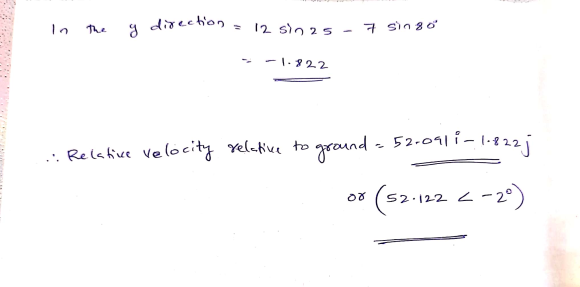 In the y direction = 12 sin 25 - 7 sin 80°
= -1.822
∴ Relative velocity relative to ground = 52.091 i - 1.822 j
or (52.122 ∠ -2°)